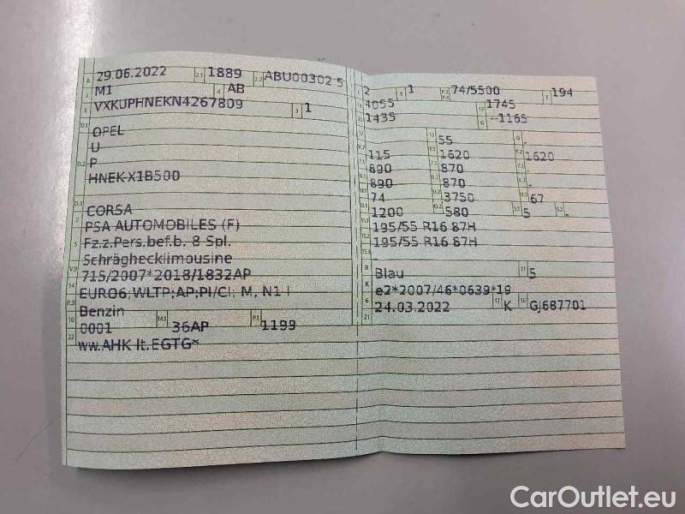 29.06.2022 1889 ABU00302 5
M1 AB
VXKUPHNEKN4267809 1
OPEL
U
P
HNEK-X1B500
CORSA
PSA AUTOMOBILES (F)
Fz.z.Pers.bef.b. 8 Spl.
Schräghecklimousine
715/2007*2018/1832AP
EURO6;WLTP;AP;PI/CI; M, N1 I
Benzin
0001 36AP 1199
ww.AHK lt.EGTG*
2 1 74/5500 194
4055 1745
1435 --1165
55 -
115 1620 1620
890 870 -
890 870 -
74 3750 67
1200 580 5 -
195/55 R16 87H
195/55 R16 87H
Blau 5
e2*2007/46*0639*19
24.03.2022 K GJ687701
CarOutlet.eu